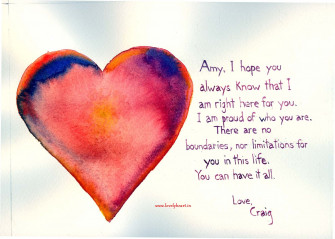 Amy, I hope you
always know that I
am right here for you.
I am proud of who you are.
There are no
boundaries, nor limitations for
you in this life.
You can have it all.
Love,
Craig
www.lovelyheart.in